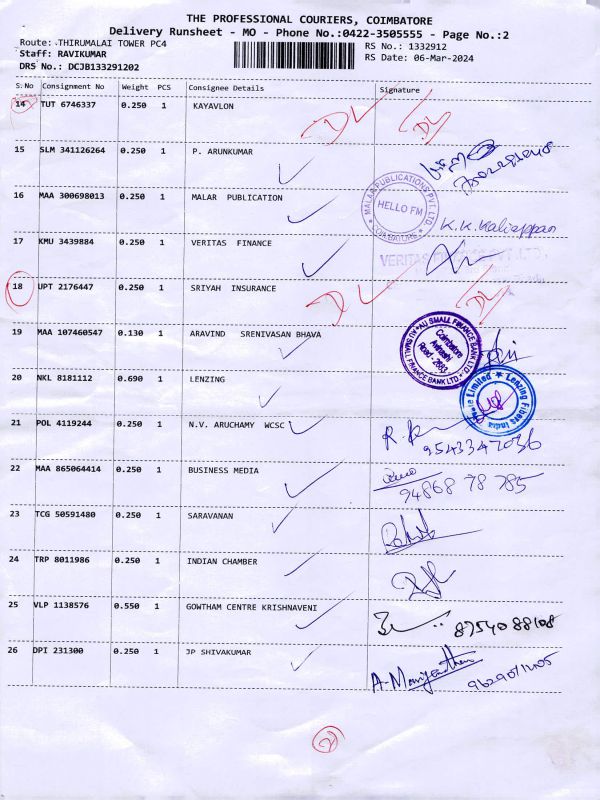 THE PROFESSIONAL COURIERS, COIMBATORE
Delivery Runsheet - MO - Phone No.:0422-3505555 - Page No.:2
Route: THIRUMALAI TOWER PC4 RS No.: 1332912
Staff: RAVIKUMAR RS Date: 06-Mar-2024
DRS No.: DCJB133291202
S.No Consignment No Weight PCS Consignee Details Signature
14 TUT 6746337 0.250 1 KAYAVLON DL DL
15 SLM 341126264 0.250 1 P. ARUNKUMAR
16 MAA 300698013 0.250 1 MALAR PUBLICATION
MALAR PUBLICATIONS PVT. LTD.
HELLO FM
COIMBATORE
K.K. Kaliappan
17 KMU 3439884 0.250 1 VERITAS FINANCE
VERITAS
18 UPT 2176447 0.250 1 SRIYAH INSURANCE DL DL
19 MAA 107460547 0.130 1 ARAVIND SRENIVASAN BHAVA
AU SMALL FINANCE BANK LTD.
Coimbatore
Avinashi
Road - 2693
20 NKL 8181112 0.690 1 LENZING
Lenzing Fibers India
Limited
21 POL 4119244 0.250 1 N.V. ARUCHAMY WCSC
9543347036
22 MAA 865064414 0.250 1 BUSINESS MEDIA
94868 78 785
23 TCG 50591480 0.250 1 SARAVANAN
24 TRP 8011986 0.250 1 INDIAN CHAMBER
25 VLP 1138576 0.550 1 GOWTHAM CENTRE KRISHNAVENI
8754088108
26 DPI 231300 0.250 1 JP SHIVAKUMAR
2